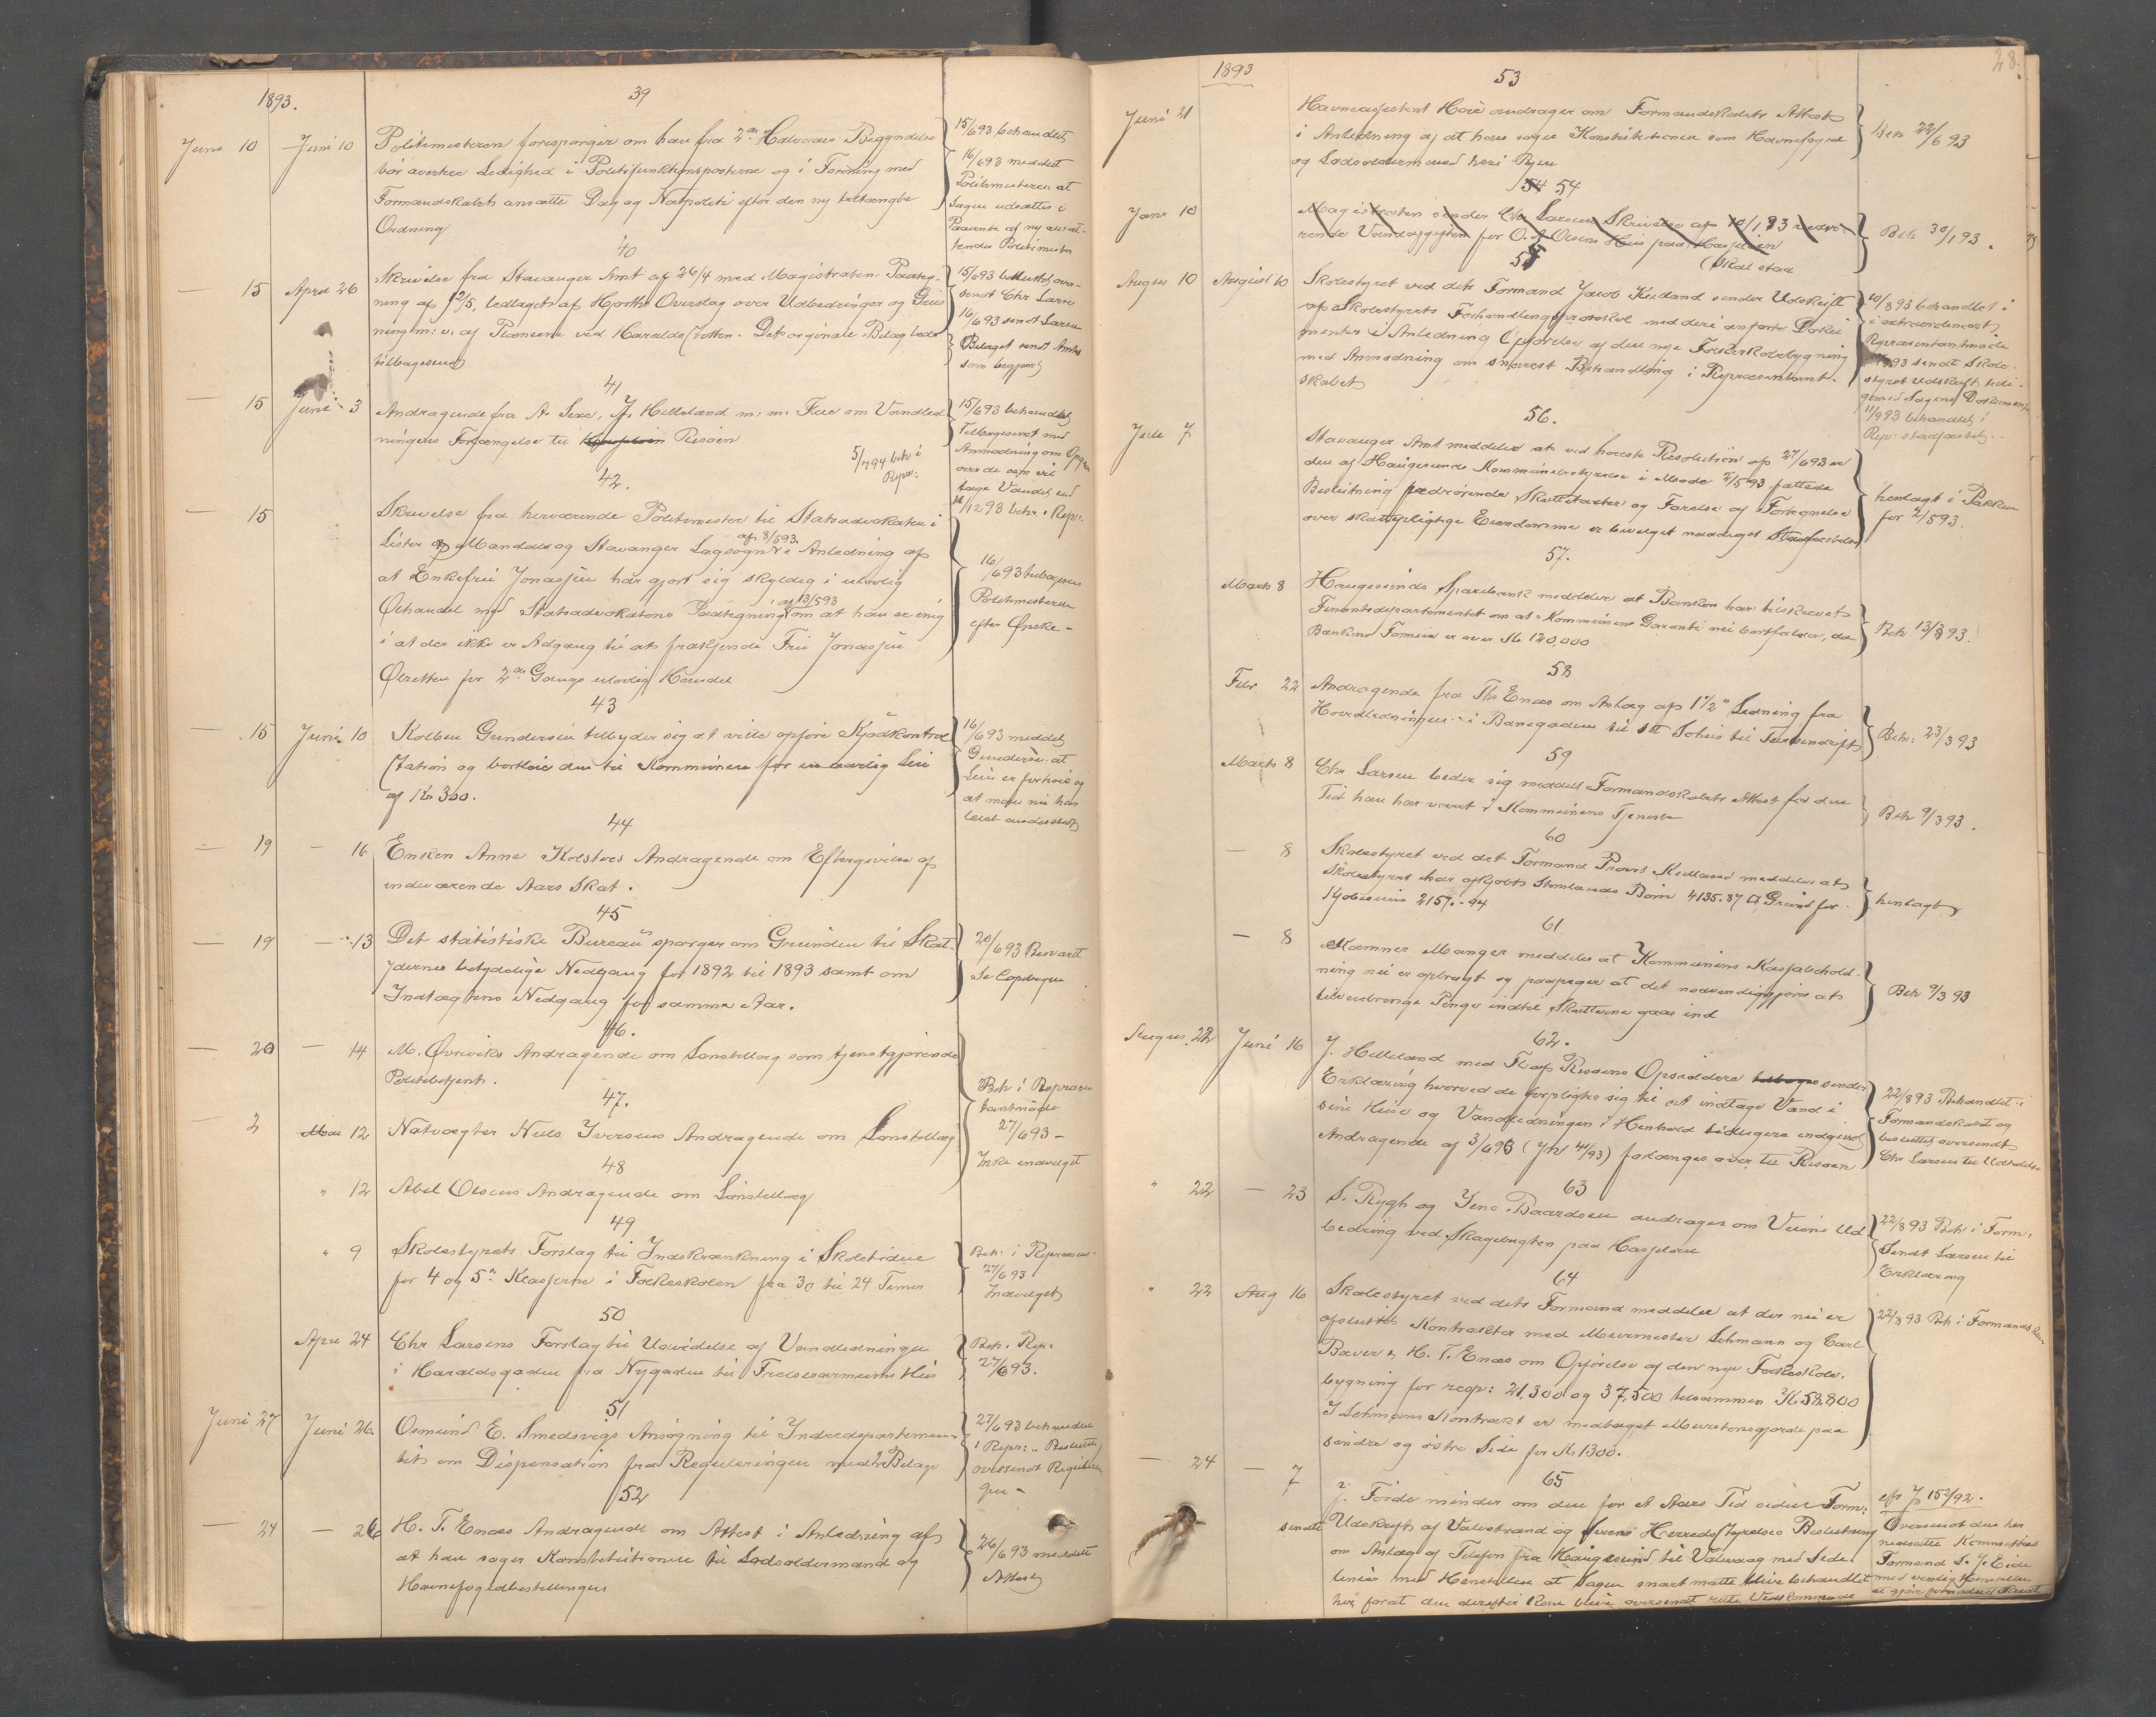 1893.
39
Juni 10 Juni 10 Politimesteren forespørger om han fra 2den Halvaars Begyndelse
bör avertere Ledighed i Politifunktionsposterne og i Forening med
Formandskabet ansætte Dag og Natpoliti efter den ny
Ordning
15/6 93 behandlet
16/6 93 meddelt
Politimesteren at
Sagen udsættes i
Paavente af ny
Politimester
40
— 15 April 26 Skrivelse fra Stavanger Amt af 26/4 med Magistratens Paateg-
ning af 12/5, ledsaget af Hjorths Overslag over Udbedringer og
ning m: v. af Plænerne ved Haraldsstøtten. Det originale Bilag bedes
tilbagesendt
15/6 93 besluttet over-
sendt Chr Larsen
16/6 93 sendt Larsen
Bilaget sendt Amtet
som begjært
41
— 15 Juni 3 Andragende fra A. Sexe, J. Helleland m: m: Flere om Vandled
ningens Forlængelse til Risöen
5/7 94 beh i
Repr:
15/6 93 behandlet
Tilbagesendt med
Anmodning om Opgave
over de som vil
tage Vandet ind
12/12 93 beh. i Repr:
42.
— 15 Skrivelse fra herværende Politimester til Statsadvokaten i
Lister og Mandals og Stavanger Lagsogn af 8/5 93. i Anledning af
at Enkefru Jonassen har gjort sig skyldig i ulovlig
Ølhandel med Statsadvokatens Paategning af 13/5 93 om at han er enig
i at der ikke er Adgang til at frakjende Fru Jonassen
Ølretten for 2den Gangs ulovlig Handel
16/6 93 tilbagesendt
Politimesteren
efter Ønske -
43
— 15 Juni 10 Kolben Gundersen tilbyder sig at ville opföre Kjödkontrol
Station og bortleie den til Kommunen for en aarlig Leie
af Kr 300.
16/6 93 meddelt
Gundersen at
Leien er for høi og
at man nu har
leiet andetsteds
44
— 19 — 16 Enken Anne Kolstøes Andragende om Eftergivelse af
indeværende Aars Skat.
45
— 19 — 13 Det statistiske Bureau spørger om Grunden til Skat-
ydernes betydelige Nedgang fra 1892 til 1893 samt om
Indtægtens Nedgang for samme Aar.
20/6 93 Besvart
Se Copibogen
46.
— 20 — 14 M. Øvreviks Andragende om Lönstillæg som tjenstgjörende
Politibetjent.
47.
— 2 Mai 12 Natvægter Nils Iversens Andragende om Lönstillæg
Beh i Repræsen
tantmøde
27/6 93 -
Ikke indvilget
48
" 12 Abel Olsens Andragende om Lönstillæg
49
" 9 Skolestyrets Forslag til Indskrænkning i Skoletiden
for 4 og 5te Klasserne i Folkeskolen fra 30 til 24 Timer
Beh: i Repræsent-
27/6 93
Indvilget
50
Apr 24 Chr Larsens Forslag til Udvidelse af Vandledningen
i Haraldsgaden fra Nygaden til Frelsesarmeens Hus
Beh. Repr:
27/6 93.
51
Juni 27 Juni 26. Osmund E. Smedsvigs Ansøgning til Indredepartemen-
tet om Dispensation fra Reguleringen med 2 Bilage
27/6 93 behandlet
i Repr: Besluttet
oversendt
52
— 24 — 26 H. T. Enæs Andragende om Attest i Anledning af
at han søger Konstitutionen til Lodsoldermand og
Havnefogedbestillingen
26/6 93 meddelt
Attest
28.
1893
53
Juni 21 Havneassistent Høie andrager om Formandskabets Attest
i Anledning af at han søger Konstitutionen som Havnefoged
og Lodsoldermand heri Byen
Beh 22/6 93
54 54
Janr 10 Magistraten sender Chr Larsens Skrivelse af 10/1 93 vedrö-
rende Vandafgiften for O. A. Olsens Hus paa Hasseløen
(Skal staa
Beh 30/1 93.
55
August 10 August 10 Skolestyret ved dets Formand Jacob Kielland sender Udskrift
af Skolestyrets Forhandlingsprotokol med deri anførte Doku
menter i Anledning Opførelse af den nye Folkeskolebygning
med Anmodning om snarest Behandling i Repræsentant-
skabet
10/8 93 behandlet i
i extraordinært
Repræsentantmøde
93 sendt Skole-
styret Udskrift tili-
gemed Sagens Dokumenter
11/9 93 behandlet i
Repr: stadfæstet.
56.
Juli 7 Stavanger Amt meddeler at ved høieste Resolution af 27/6 93 er
den af Haugesunds Kommunebestyrelse i Møde 2/5 93 fattede
Beslutning vedrørende Skattetaxter og Førelse af Fortegnelse
over skattepligtige Eiendomme er bevilget naadigst Stadfæstelse
henlagt i Pakken
for 2/5 93.
57.
Marts 8 Haugesunds Sparebank meddeler at Banken har tilskrevet
Finantsdepartementet om at Kommunens Garanti nu bortfalder, da
Bankens Formue er over Kr 120,000
Beh 13/3 93.
58
Febr 22 Andragende fra Ths Enæs om Anlæg af 1½" Ledning fra
Hovedledningen i Banegaden til sit Søhus til Turbindrift
Beh: 23/3 93
59
Marts 8 Chr Larsen beder sig meddelt Formandskabets Attest for den
Tid han har været i Kommunens Tjeneste
Beh 9/3 93.
60
— 8 Skolestyret ved det Formand Provst Kielland meddeler at
Skolestyret har afkjöbt Stemlands Börn 4135.87 □ Grund for
Kjøbesum 2157.-94
henlagt
61
— 8 Kæmner Manger meddeler at Kommunens Kassabehold-
ning nu er opbragt og paapeger at det nødvendiggjøres at
tilveiebringe Penge indtil Skatterne gaar ind
Beh 9/3 93
62.
August 22 Juni 16 J. Helleland med Fl af Risøens Opsiddere sender
Erklæring hvorved de forpligter sig til at indtage Vand i
sine Huse og Vandledningen i Henhold tidligere indgivet
Andragende af 3/6 93 (Jr 41/93) forlænges over til Risøen
22/8 93 Behandlet i
Formandskabet og
besluttet oversendt
Chr Larsen til Udtalelse
63
" 22 — 23 S. Rygh og Jens Baardsen andrager om Veiens Ud
bedring ved Skagebugten paa Hasseløen
22/8 93 Beh i Form:
Sendt Larsen til
Erklæring
64
" 22 Aug 16 Skolestyret ved dets Formand meddeler at der nu er
afsluttet Kontrakter med Murmester Lehmann og Carl
Bæver & H. T. Enæs om Opførelse af den nye Folkeskole-
bygning for resp: 21,300 og 37,500 tilsammen Kr 58,800
I Lehmans Kontrakt er medtaget Murstensgjærde paa
søndre og østre Side for Kr 1300.
22/8 93 Beh i Formandsk
65
— 24 — 7 J. Førde minder om den for et Aars Tid siden Form:
sendte Udskrift af Valestrand og Sveens Herredsstyrelses Beslutning
om Anlæg af Telefon fra Haugesund til Valevaag med Side
linier med Henstillen at Sagen snart maatte blive behandlet
her, forat den derefter kan blive oversendt rette Vedkommende
cfr Jr 152/92.
Oversendt den her
nedsatte Kommissions
Formand S. J. Eide
med venlig Henstillen
at gjøre